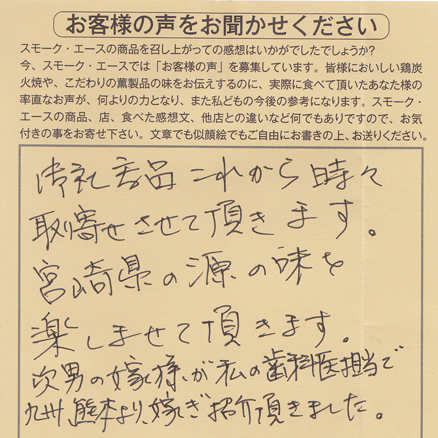 お客様の声をお聞かせください
スモーク・エースの商品を召し上がっての感想はいかがでしたでしょうか?
今、スモーク・エースでは「お客様の声」を募集しています。皆様においしい鶏炭
火焼や、こだわりの薫製品の味をお伝えするのに、実際に食べて頂いたあなた様の
率直なお声が、何よりの力となり、また私どもの今後の参考になります。スモーク・
エースの商品、店、食べた感想文、他店との違いなど何でもありですので、お気
付きの事をお寄せ下さい。文章でも似顔絵でもご自由にお書きの上、お送りください。
御社商品これから時々
取寄せさせて頂きます。
宮崎県の源の味を
楽しませて頂きます。
次男の嫁様が私の歯科医担当で
九州、熊本より、嫁ぎ紹介頂きました。